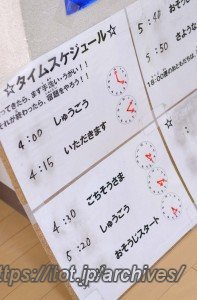 ☆タイムスケジュール☆
ってきたら、まず手洗い・うがい！！
それが終わったら、宿題をやろう！！
4:00 しゅうごう
4:15 いただきます
ごちそうさま
4:30 しゅうごう
5:20 おそうじスタート
5:40 おそうじ
5:50 さような
https://itot.jp/archives/